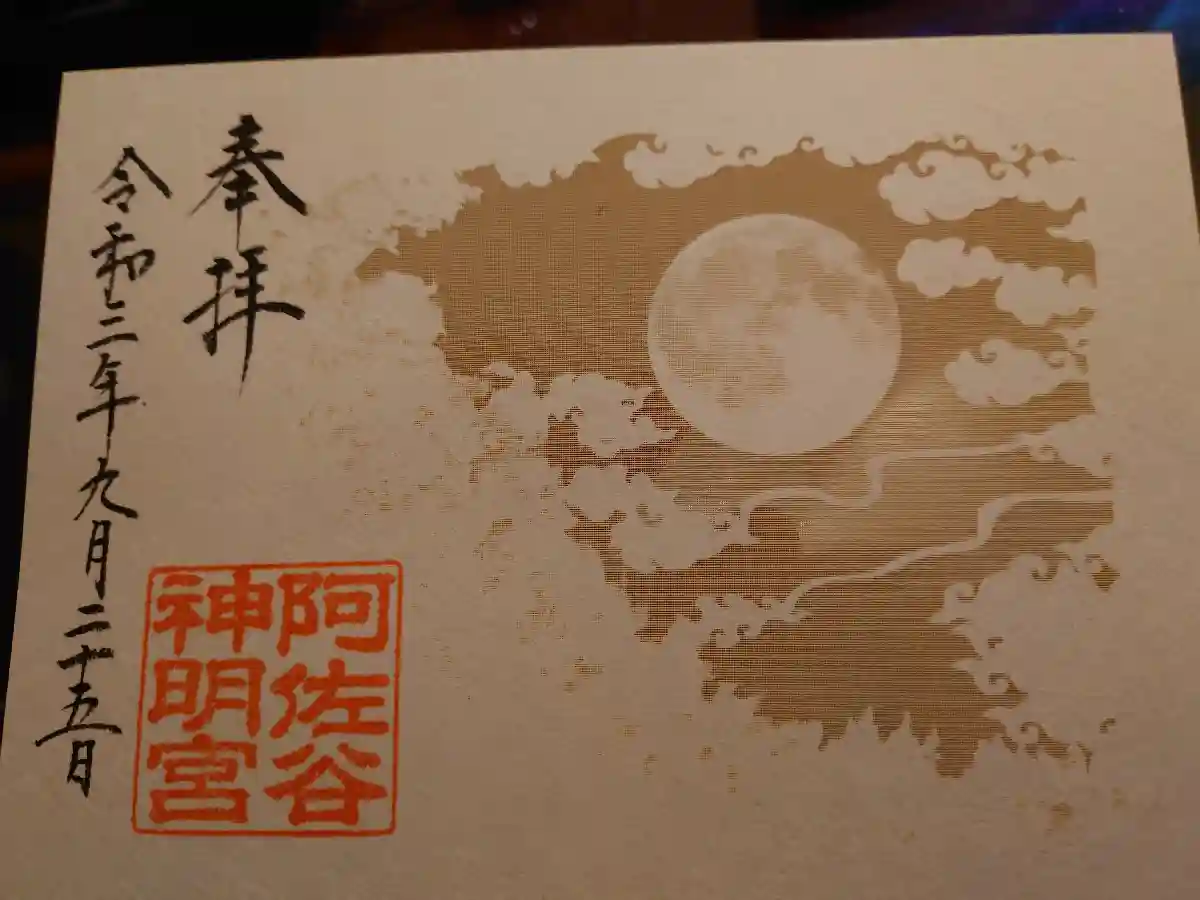 奉拝
令和二年九月二十五日
阿佐谷
神明宮